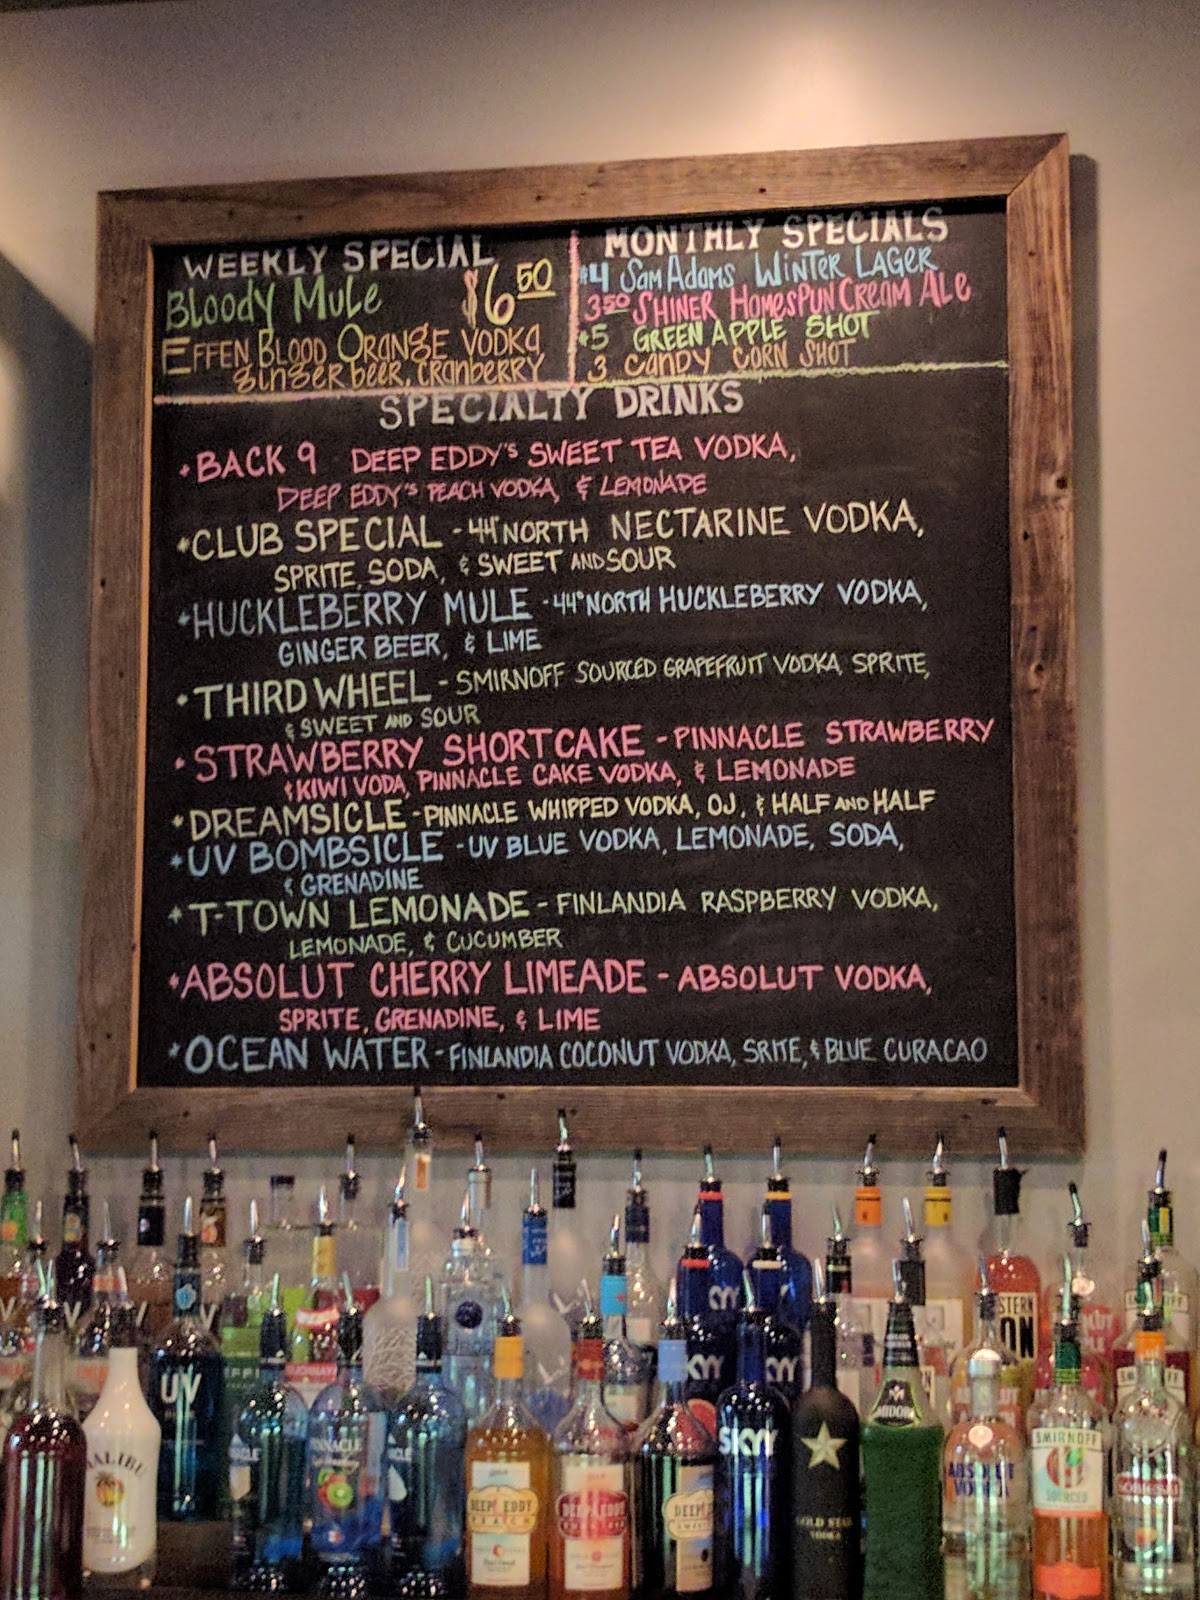 WEEKLY SPECIAL
Bloody Mule $6.50
EFFEN BLOOD ORANGE VODKA
ginger beer, cranberry
MONTHLY SPECIALS
$4 Sam Adams Winter LAGER
3.50 SHINER HomeSpun Cream Ale
$5 GREEN APPLE SHOT
3 CANDY CORN SHOT
SPECIALTY DRINKS
BACK 9 - DEEP EDDY'S SWEET TEA VODKA,
DEEP EDDY'S PEACH VODKA, & LEMONADE
CLUB SPECIAL - 44° NORTH NECTARINE VODKA,
SPRITE, SODA, & SWEET AND SOUR
HUCKLEBERRY MULE - 44° NORTH HUCKLEBERRY VODKA,
GINGER BEER, & LIME
THIRD WHEEL - SMIRNOFF SOURCED GRAPEFRUIT VODKA, SPRITE,
& SWEET AND SOUR
STRAWBERRY SHORTCAKE - PINNACLE STRAWBERRY
& KIWI VODA, PINNACLE CAKE VODKA, & LEMONADE
DREAMSICLE - PINNACLE WHIPPED VODKA, OJ, & HALF AND HALF
UV BOMBSICLE - UV BLUE VODKA, LEMONADE, SODA,
& GRENADINE
T-TOWN LEMONADE - FINLANDIA RASPBERRY VODKA,
LEMONADE, & CUCUMBER
ABSOLUT CHERRY LIMEADE - ABSOLUT VODKA,
SPRITE, GRENADINE, & LIME
OCEAN WATER - FINLANDIA COCONUT VODKA, SRITE, & BLUE CURACAO
UV
MALIBU
PINNACLE
DEEP EDDY
PEACH
DEEP EDDY
DEEP EDDY
SKYY
GOLD STAR
VODKA
MIDORI
ABSOLUT
VODKA
SMIRNOFF
SOURCED
SOBIESKI